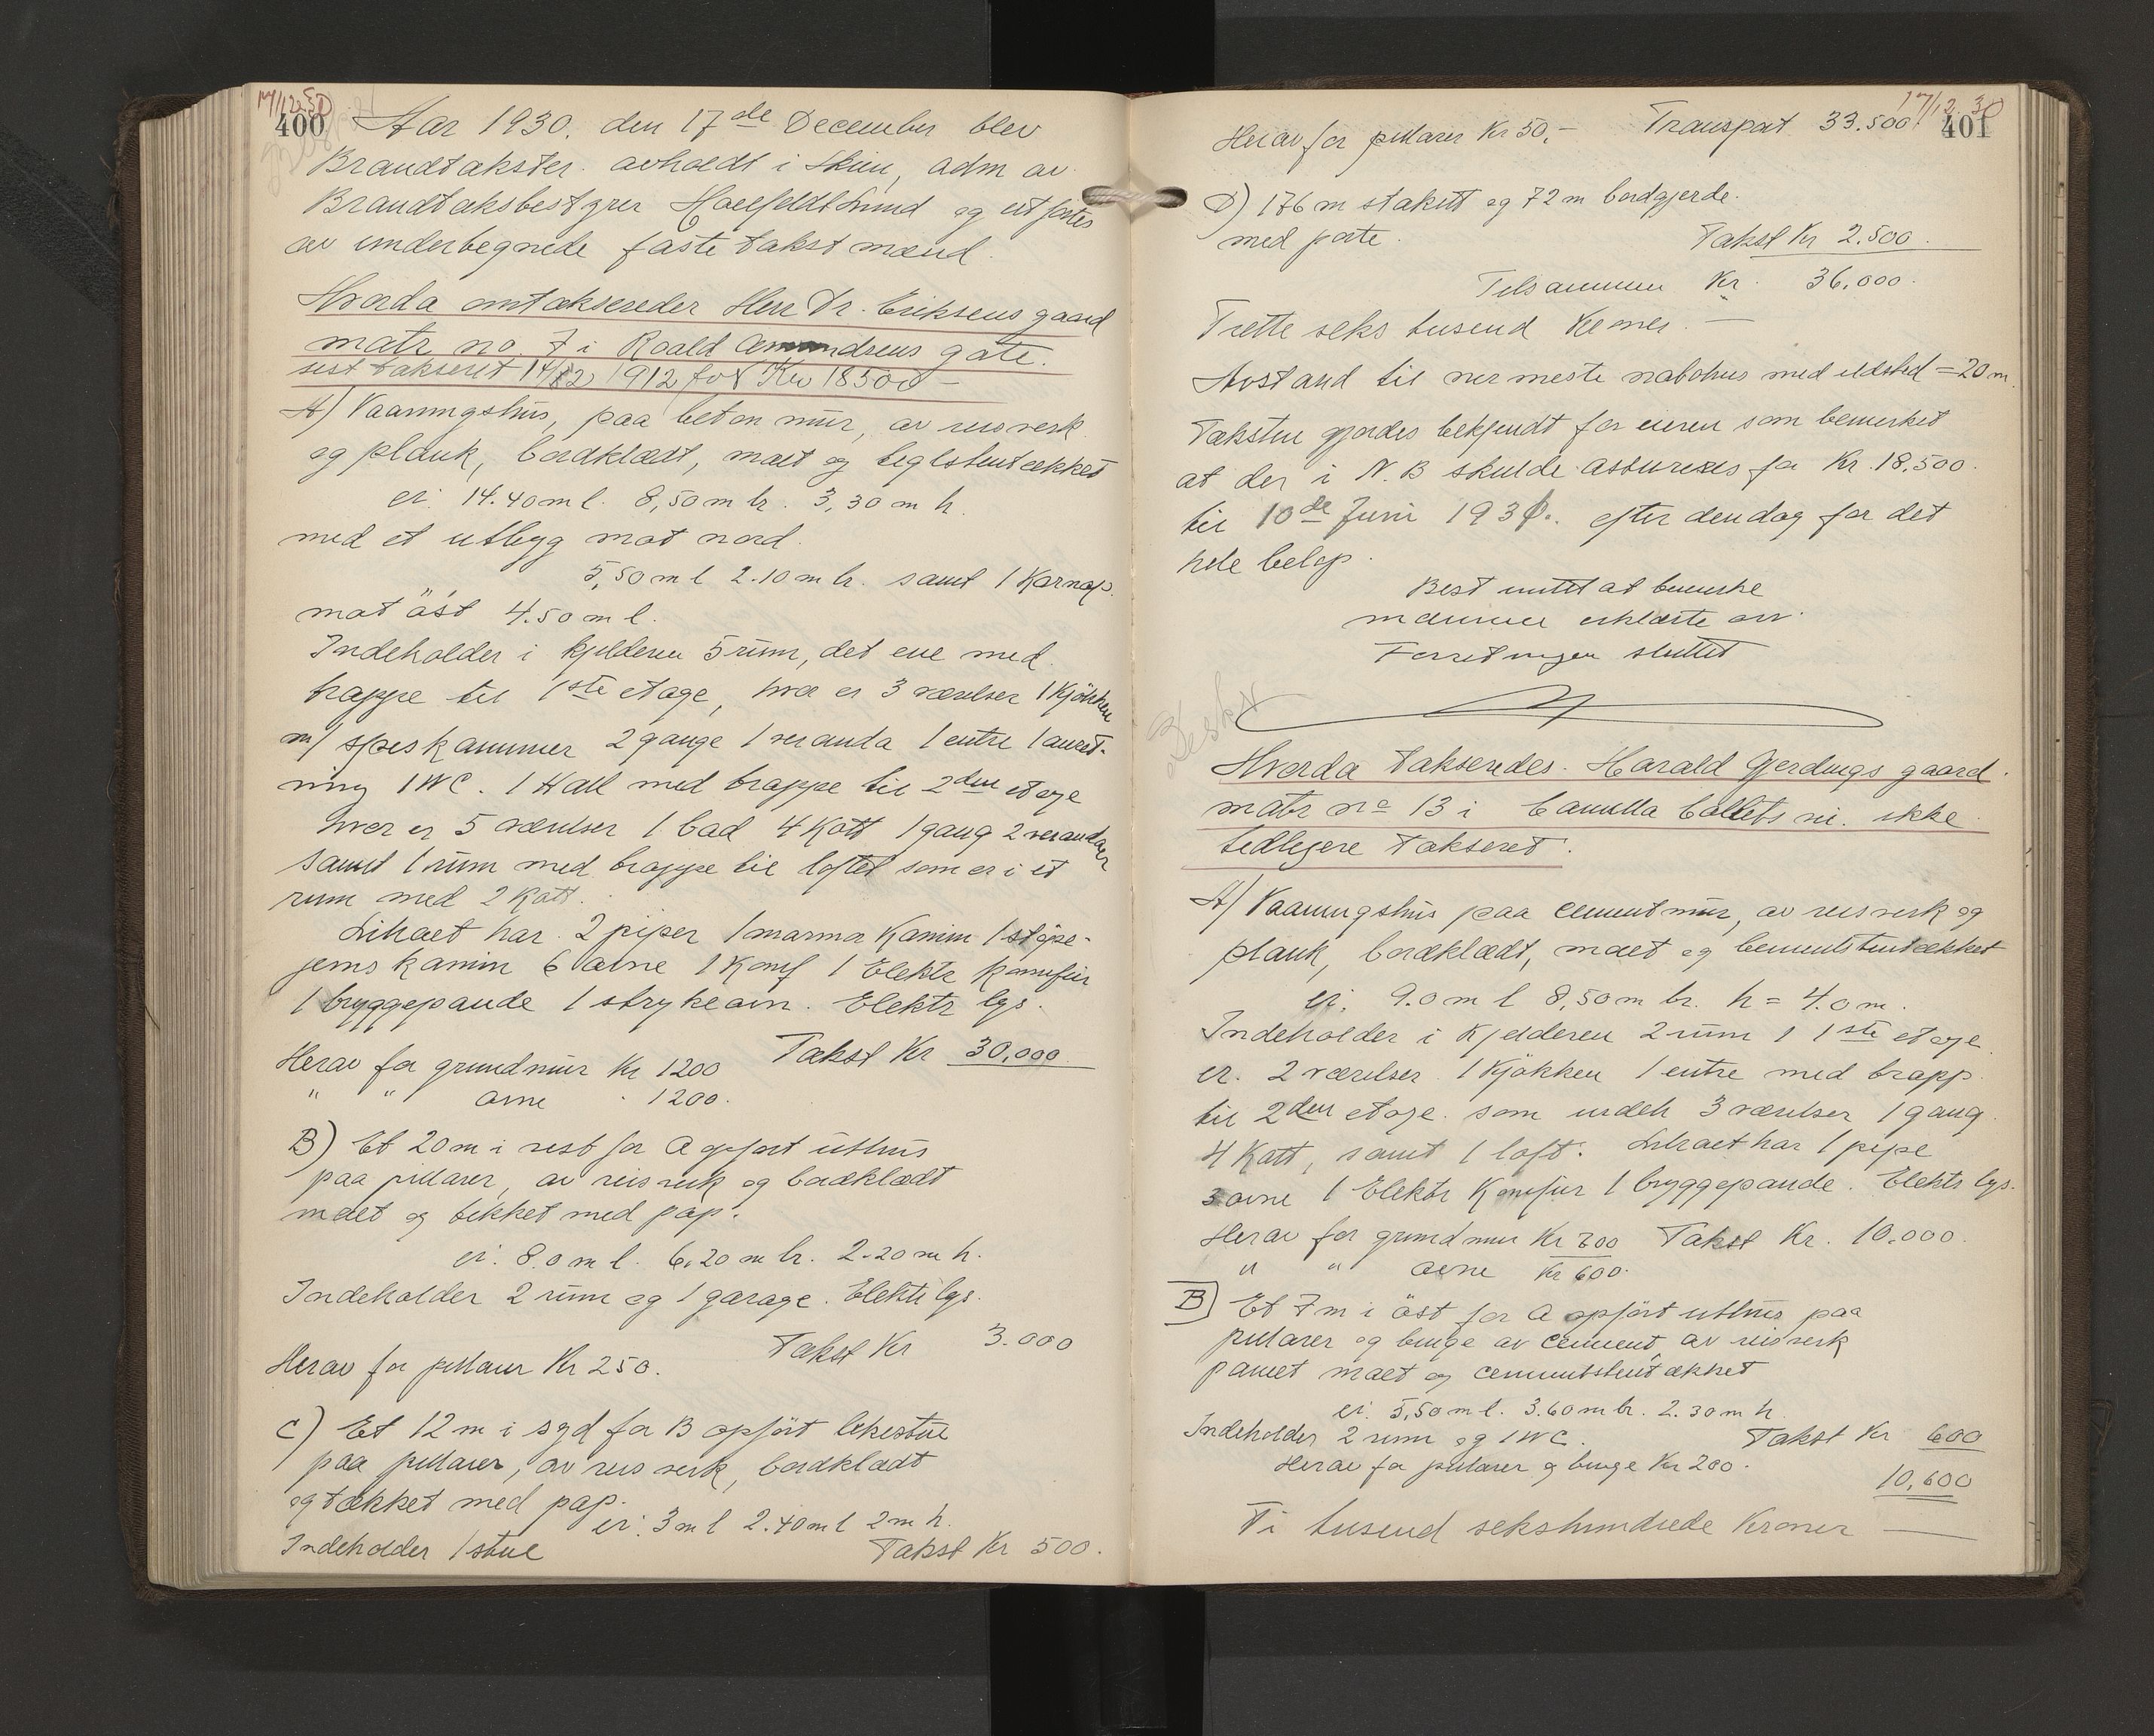 17/12 30
400
Aar 1930. den 17de December blev
Brandtakster avholdt i Skien, adm av
Brandtaksbestyrer Hoelfeldt Lund og utførtes
av underbegnede faste takstmænd.
Hvorda omtakseredes Herr Dr. Eriksens gaard
matr no. 7 i Roald Amundsens gate.
sist takseret 14/12 1912 for Kr 18500 –
A) Vaaningshus, paa beton mur, av reisverk
og plank, bordklædt, malt og teglstentækket
er: 14.40 m l. 8,50 m br. 3,30 m h.
med et utbygg mot nord.
5,50 m l 2.10 m br. samt 1 Karnap.
mot öst 4.50 m l.
Indeholder i kjelderen 5 rum, det ene med
trappe til 1ste etage, hvor er 3 værelser 1 Kjökken
m/ spiskammer 2 gange 1 veranda 1 entre 1 anret-
ning 1 WC. 1 Hall med trappe til 2den etage
hvor er 5 værelser 1 bad 4 Kott 1 gang 2 verandaer
samt 1 rum med trappe til loftet som er i et
rum med 2 Kott.
Likaet har 2 piper 1 marmor Kamin 1 støpe-
jerns kamin 6 ovne 1 Komf 1 Elektr komfur
1 bryggepande 1 strykeovn. Elektr lys.
Takst Kr 30,000
Herav for grundmur Kr 1200
" " ovne " 1200.
B) Et 20 m i vest for A opført uthus
paa pillarer, av reisverk og bordklædt
malt og tekket med pap.
er: 8.0 m l. 6,20 m br. 2.20 m h.
Indeholder 2 rum og 1 garage. Elektr lys.
Takst Kr 3.000
Herav for pillarer Kr 250.
C) Et 12 m i syd for B opfört lekestue
paa pillarer, av reisverk, bordklædt
og tækket med pap.
er: 3 m l 2.40 m l 2 m h.
Indeholder 1 stue Takst Kr 500.
17/12 30
401
Herav for pillarer Kr 50,- Transport 33.500
D) 176 m stakitt og 72 m bordgjerde.
med porte. Takst Kr 2.500.
Tilsammen Kr. 36,000.
Trette seks tusend Kroner. –
Avstand til nermeste nabohus med ildsted = 20 m.
Taksten gjordes bekjendt for eieren som bemerket
at der i N.B skulde assureres for Kr. 18,500.
til 10de Juni 1931. efter den dag for det
hele beløp.
Best intet at bemerke
mænnene erklærte sig
Forretningen sluttet
Hvorda takseredes. Harald Gjerdings gaard
matr no 13 i Camilla Colletts vei. ikke
tidligere takseret.
A) Vaaningshus paa cementmur, av reisverk og
plank, bordklædt, malt og cementstentækket
er: 9.0 m l 8,50 m br. h = 4.0 m.
Indeholder i Kjelderen 2 rum i 1ste etage
er. 2 værelser 1 Kjökken 1 entre med trapp
til 2den etage. som indeh 3 værelser 1 gang
4 Kott, samt 1 loft. Likaet har 1 pipe
3 ovne 1 Elektr Komfur 1 bryggepande. Elektr lys.
Herav for grundmur Kr 800 Takst Kr. 10.000.
" " ovne Kr 600.
B) Et 7 m i öst for A opfört uthus paa
pillarer og binge av cement, av reisverk
panelt malt og cementstentækket
er: 5,50 m l. 3.60 m br. 2.30 m h
Indeholder 2 rum og 1 WC. Takst Kr 600
Herav for pillarer og binge Kr 200.
10,600
Ti tusend sekshundrede Kroner –